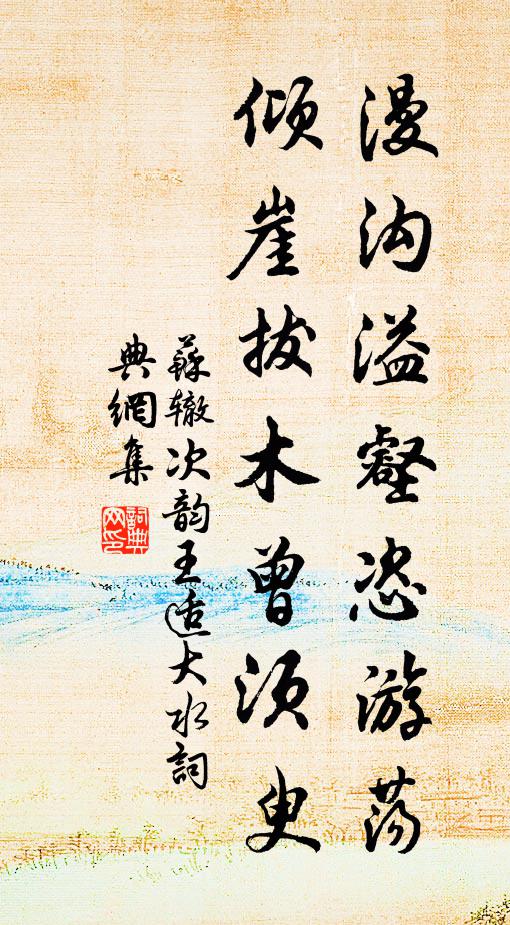 漫沟溢壑恣游荡
倾崖拔木曾须臾
蘇辙次韵王适大水詞
典網集
詞典网印